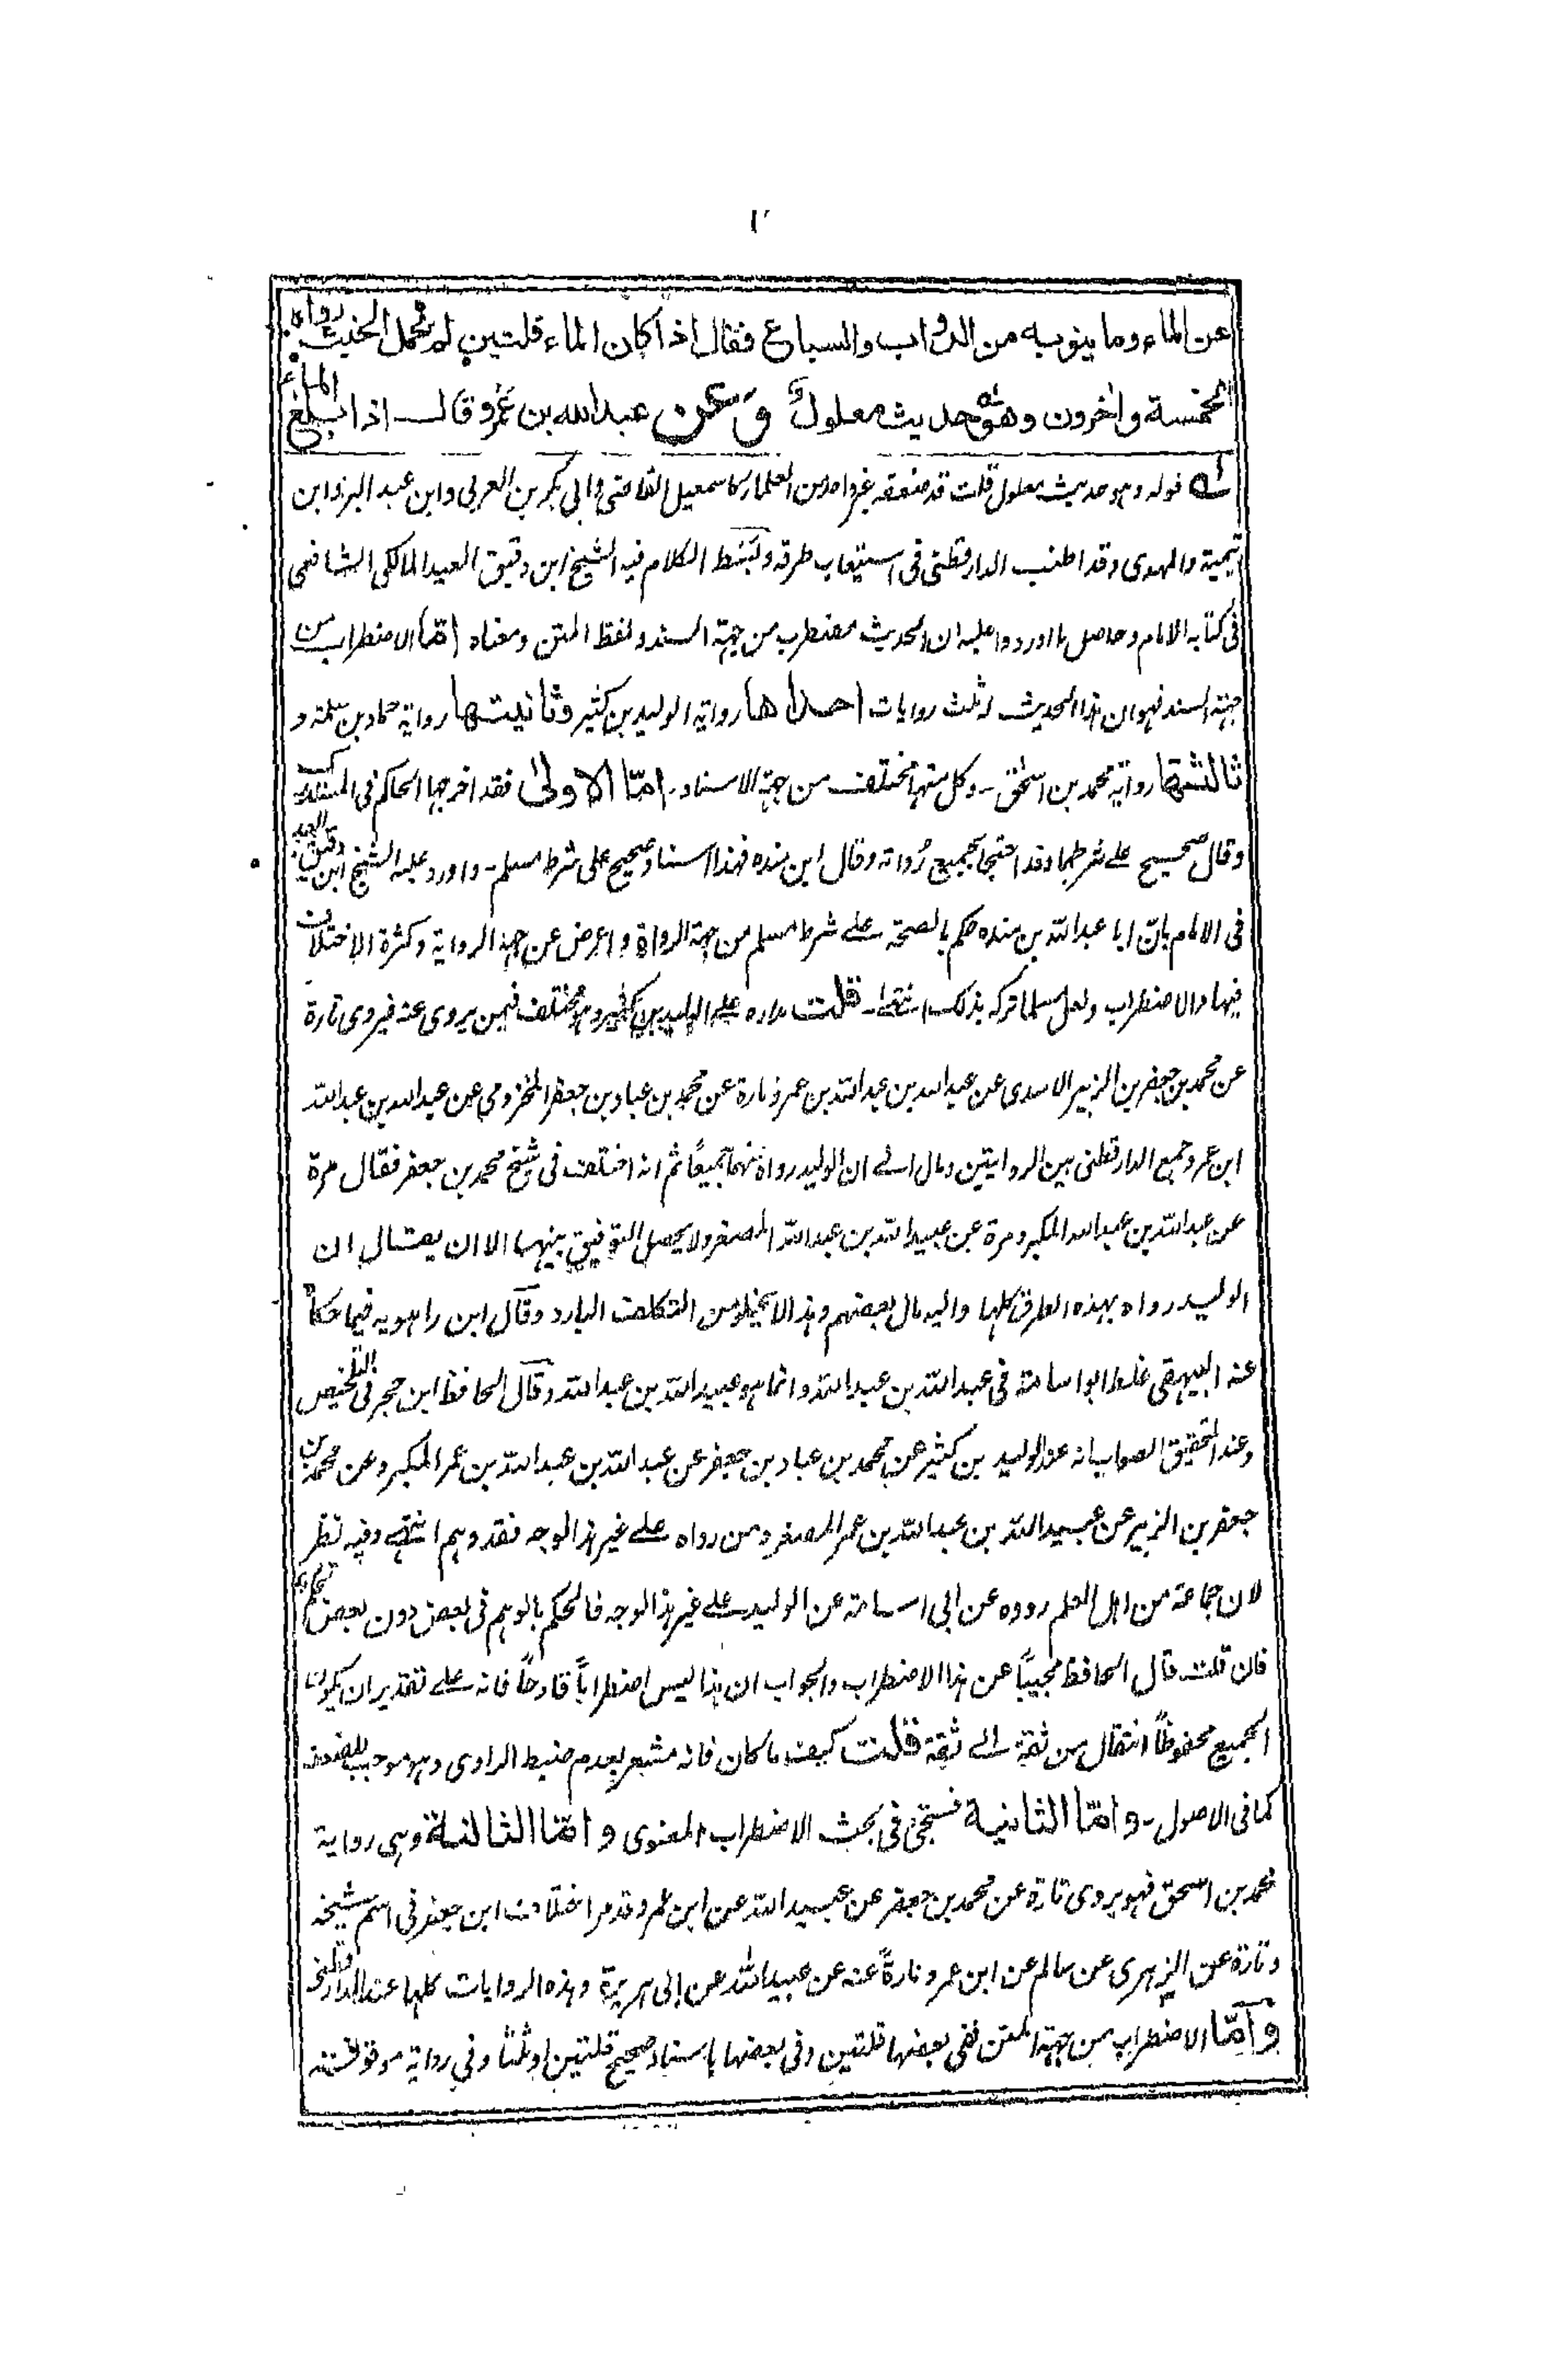 عن الماء وما ينوبه من الدواب والسباع فقال اذا كان الماء قلتين لم يحمل الخبث رواه
الخمسة وآخرون وهو حديث معلول وعن عبد الله بن عمرو قال اذا بلغ الماء
قوله وهو حديث معلول قلت قد ضعفه غير واحد من العلماء كاسمعيل القاضى وابى بكر بن العربى وابن عبد البر وابن
تيمية والمهدوى وقد اطنب الدارقطنى فى استيعاب طرقه وبسط الكلام فيه الشيخ ابن دقيق العيد المالكى الشافعى
فى كتابه الامام وحاصل ما اوردوا عليه ان الحديث مضطرب من جهة السند ولفظ المتن ومعناه اما الاضطراب من
جهة السند فهو ان هذا الحديث له ثلث روايات احداها رواية الوليد بن كثير وثانيتها رواية حماد بن سلمة و
ثالثتها رواية محمد بن اسحٰق ۔ وكل منها مختلف من جهة الاسناد ۔ امّا الاولىٰ فقد اخرجها الحاكم فى المستدرك
وقال صحيح على شرطهما وقد احتجا بجميع رُواته وقال ابن منده فهذا اسناد صحيح على شرط مسلم ۔ واورد عليه الشيخ ابن دقيق العيد
فى الامام بانّ ابا عبد الله بن منده حكم بالصحة على شرط مسلم من جهة الرواة واعرض عن جهة الرواية وكثرة الاختلاف
فيها والاضطراب ولعل مسلما تركه بذلك انتهىٰ ۔ قلت مداره على الوليد بن كثير وهو مختلف فيمن يروى عنه فيروى تارة
عن محمد بن جعفر بن الزبير الاسدى عن عبد الله بن عبد الله بن عمر وتارة عن محمد بن عباد بن جعفر المخزومى عن عبد الله بن عبد الله
ابن عمر وجمع الدارقطنى بين الروايتين ومال الى ان الوليد رواه عنهما جميعًا ثم انه اختلف فى شيخ محمد بن جعفر فقال مرة
عن عبد الله بن عبد الله المكبر ومرة عن عبيد الله بن عبد الله المصغر ولا يحصل التوفيق بينهما الا ان يقال ان
الوليد رواه بهذه الطرق كلها واليه مال بعضهم وهذا لا يخلو من التكلف البارد وقال ابن راهويه فيما حكاه
عنه البيهقى غلط ابو اسامة فى عبد الله بن عبد الله وانما هو عبيد الله بن عبد الله وقال الحافظ ابن حجر فى التلخيص
وعند التحقيق الصواب انه عند الوليد بن كثير عن محمد بن عباد بن جعفر عن عبد الله بن عبد الله بن عمر المكبر وعن محمد بن
جعفر بن الزبير عن عبيد الله بن عبد الله بن عمر المصغر ومن رواه على غير هذا الوجه فقد وهم انتهى وفيه نظر
لان جماعة من اهل العلم رووه عن ابى اسامة عن الوليد على غير هذا الوجه فالحكم بالوهم فى بعض دون بعض تحكم
فان قلت قال الحافظ مجيبًا عن هذا الاضطراب والجواب ان هذا ليس اضطرابًا قادحًا فانه على تقدير ان يكون
الجميع محفوظًا انتقال من ثقة الى ثقة قلت كيف ما كان فانه مشعر بعدم ضبط الراوى وهو موجب للضعف
كما فى الاصول ۔ وامّا الثانية فستجىٔ فى بحث الاضطراب المعنوى وامّا الثالثة وهى رواية
محمد بن اسحٰق فهو يروى تارة عن محمد بن جعفر عن عبيد الله عن ابن عمر وقد مر اختلاف ابن جعفر فى اسم شيخه
وتارة عن الزهرى عن سالم عن ابن عمر وتارةً عنه عن عبيد الله عن ابى هريرة وهذه الروايات كلها عند الدارقطنى
وامّا الاضطراب من جهة المتن ففى بعضها قلتين وفى بعضها باسناد صحيح قلتين او ثلثًا وفى رواية موقوفة